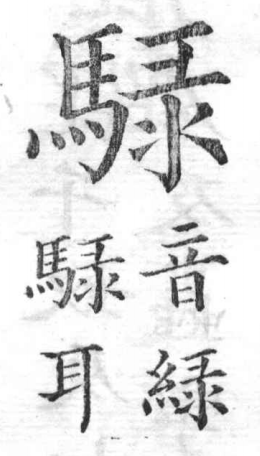 騄
音緑
騄耳